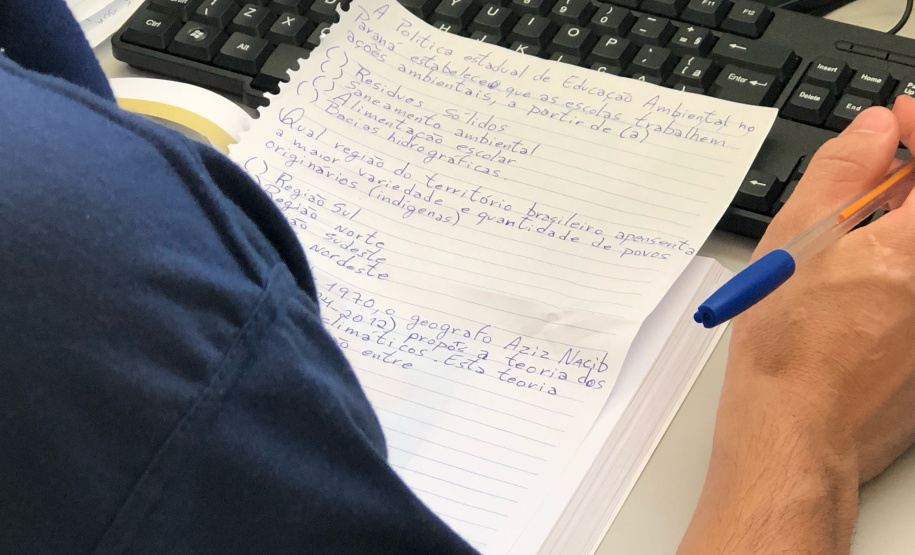 A Política estadual de Educação Ambiental no
Paraná estabelece que as escolas trabalhem
ações ambientais, a partir de (a)
( ) Resíduos Sólidos
( ) Saneamento ambiental
( ) Alimentação escolar
Bacias hidrográficas.
Qual região do território brasileiro apensenta
a maior variedade e quantidade de povos
originários (indígenas)
( ) Região Sul
Região Norte
Sudeste
Nordeste
1970, o geografo Aziz Nacib
2012) propõe a teoria dos
Esta teoria
entre
Ctrl
Alt
Z
X
Y
U
I
O
P
K
L
F11
F12
Enter
Insert
Home
Delete
End